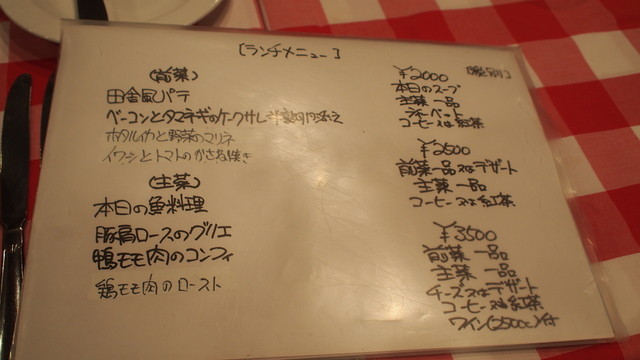 [ランチメニュー]
(前菜)
田舎風パテ
ベーコンとタマネギのケークサレ 半熟卵添え
ホタルイカと野菜のマリネ
イワシとトマトのかさね焼き
(主菜)
本日の魚料理
豚肩ロースのグリエ
鴨モモ肉のコンフィ
鶏モモ肉のロースト
[税別]
¥2000
本日のスープ
主菜一品
シャーベット
コーヒー又は紅茶
¥2500
前菜一品又はデザート
主菜一品
コーヒー又は紅茶
¥3500
前菜一品
主菜一品
チーズ又はデザート
コーヒー又は紅茶
ワイン(250cc)付